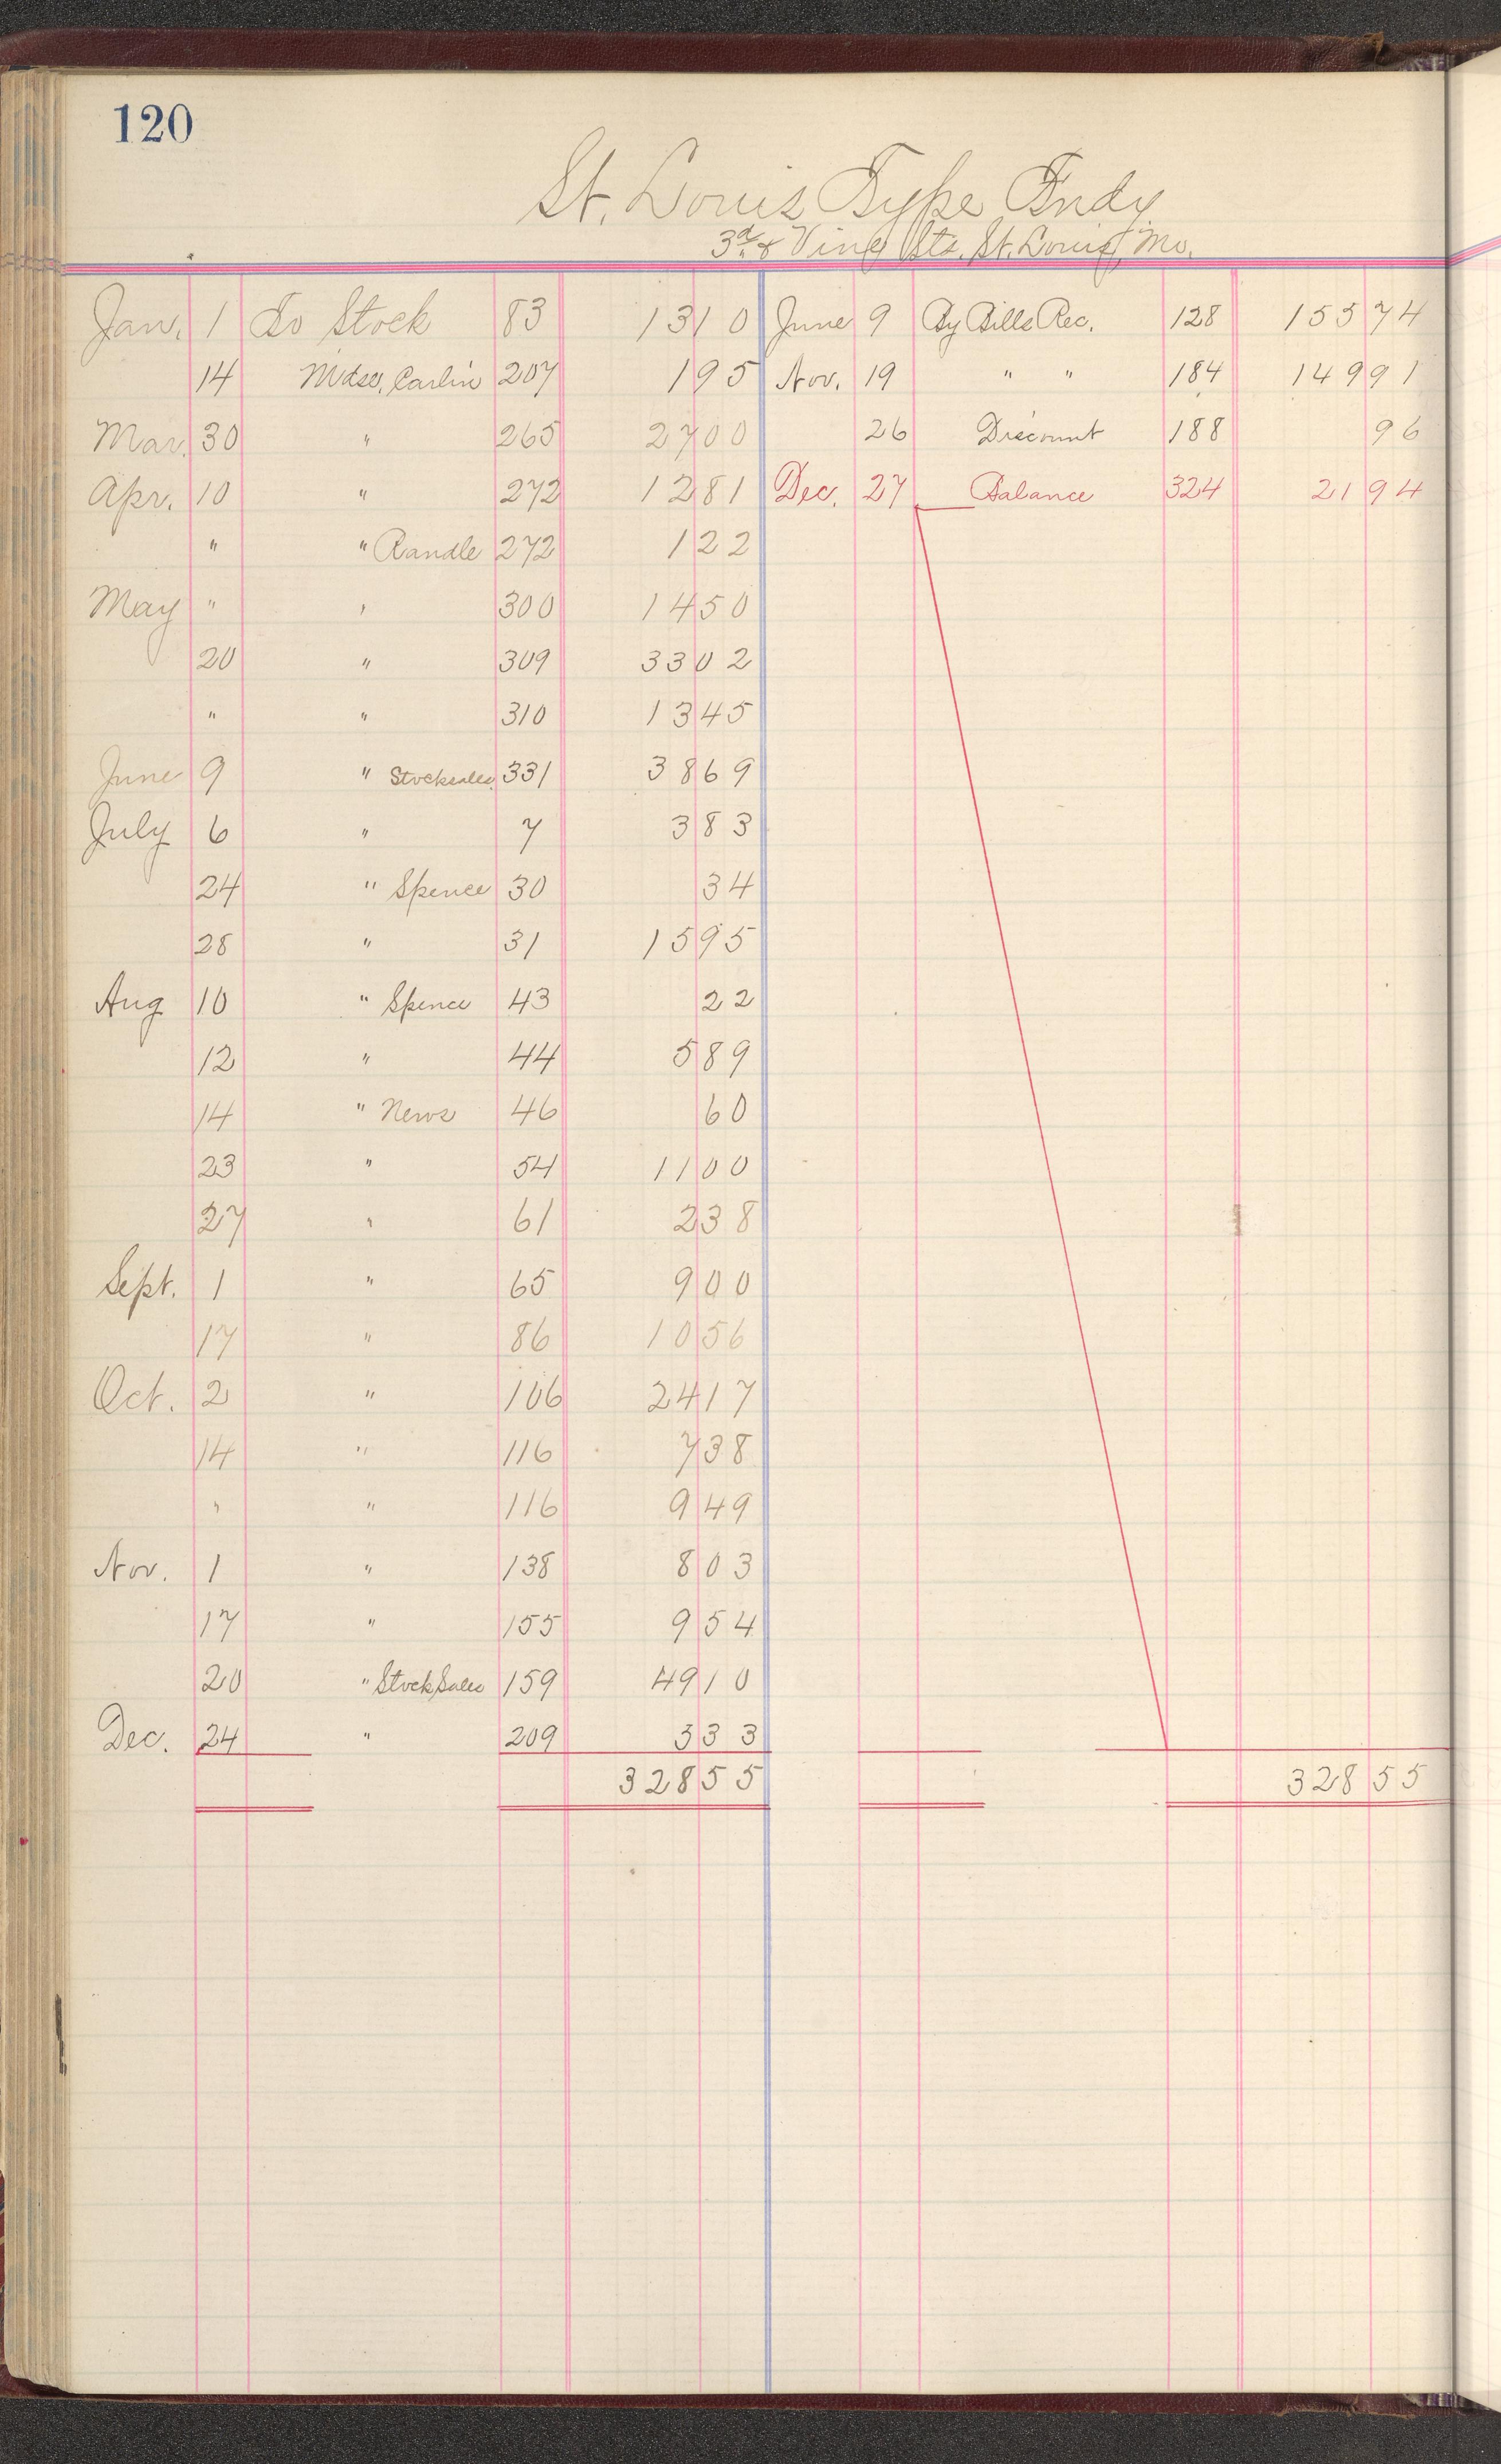 120
St. Louis Type Fndy
3d & Vine Sts. St. Louis, Mo.
Jan. 1 To Stock 83 13 10
14 Mdse, Carlin 207 1 95
Mar. 30 " 265 27 00
Apr. 10 " 272 12 81
" " Randle 272 1 22
May " " 300 14 50
20 " 309 33 02
" " 310 13 45
June 9 " Stocksales 331 38 69
July 6 " 7 3 83
24 " Spence 30 34
28 " 31 15 95
Aug 10 " Spence 43 22
12 " 44 5 89
14 " News 46 60
23 " 54 11 00
27 " 61 2 38
Sept. 1 " 65 9 00
17 " 86 10 56
Oct. 2 " 106 24 17
14 " 116 7 38
" " 116 9 49
Nov. 1 " 138 8 03
17 " 155 9 54
20 " Stock Sales 159 49 10
Dec. 24 " 209 3 33
328 55
June 9 By Bills Rec. 128 155 74
Nov. 19 " " 184 149 91
26 Discount 188 96
Dec. 27 Balance 324 21 94
328 55